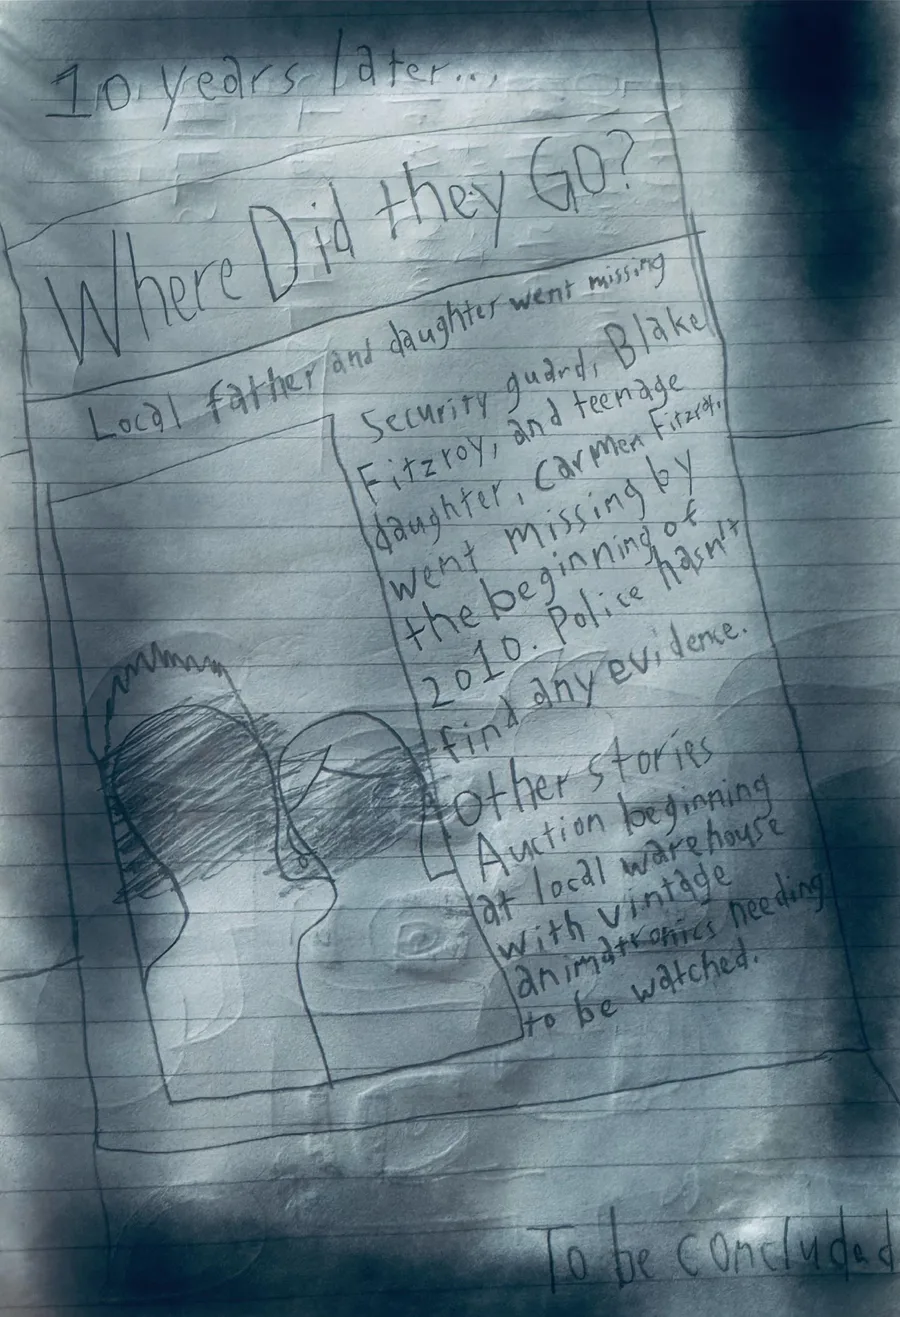 10 years later...
Where Did they GO?
Local father and daughter went missing
Security guard, Blake
Fitzroy, and teenage
daughter, Carmen Fitzroy,
went missing by
the beginning of
2010. Police hasn't
find any evidence.
Other stories
Auction beginning
at local warehouse
with vintage
animatronics needing
to be watched.
To be concluded